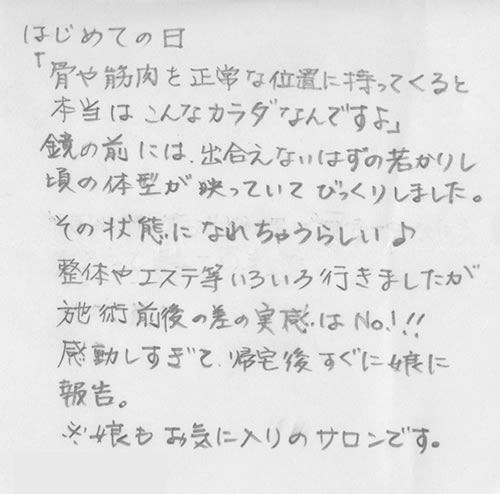 はじめての日
「骨や筋肉を正常な位置に持ってくると
本当はこんなカラダなんですよ」
鏡の前には、出合えないはずの若かりし
頃の体型が映っていてびっくりしました。
その状態になれちゃうらしい♪
整体やエステ等いろいろ行きましたが
施術前後の差の実感はNo.1!!
感動しすぎて、帰宅後すぐに娘に
報告。
※娘もお気に入りのサロンです。